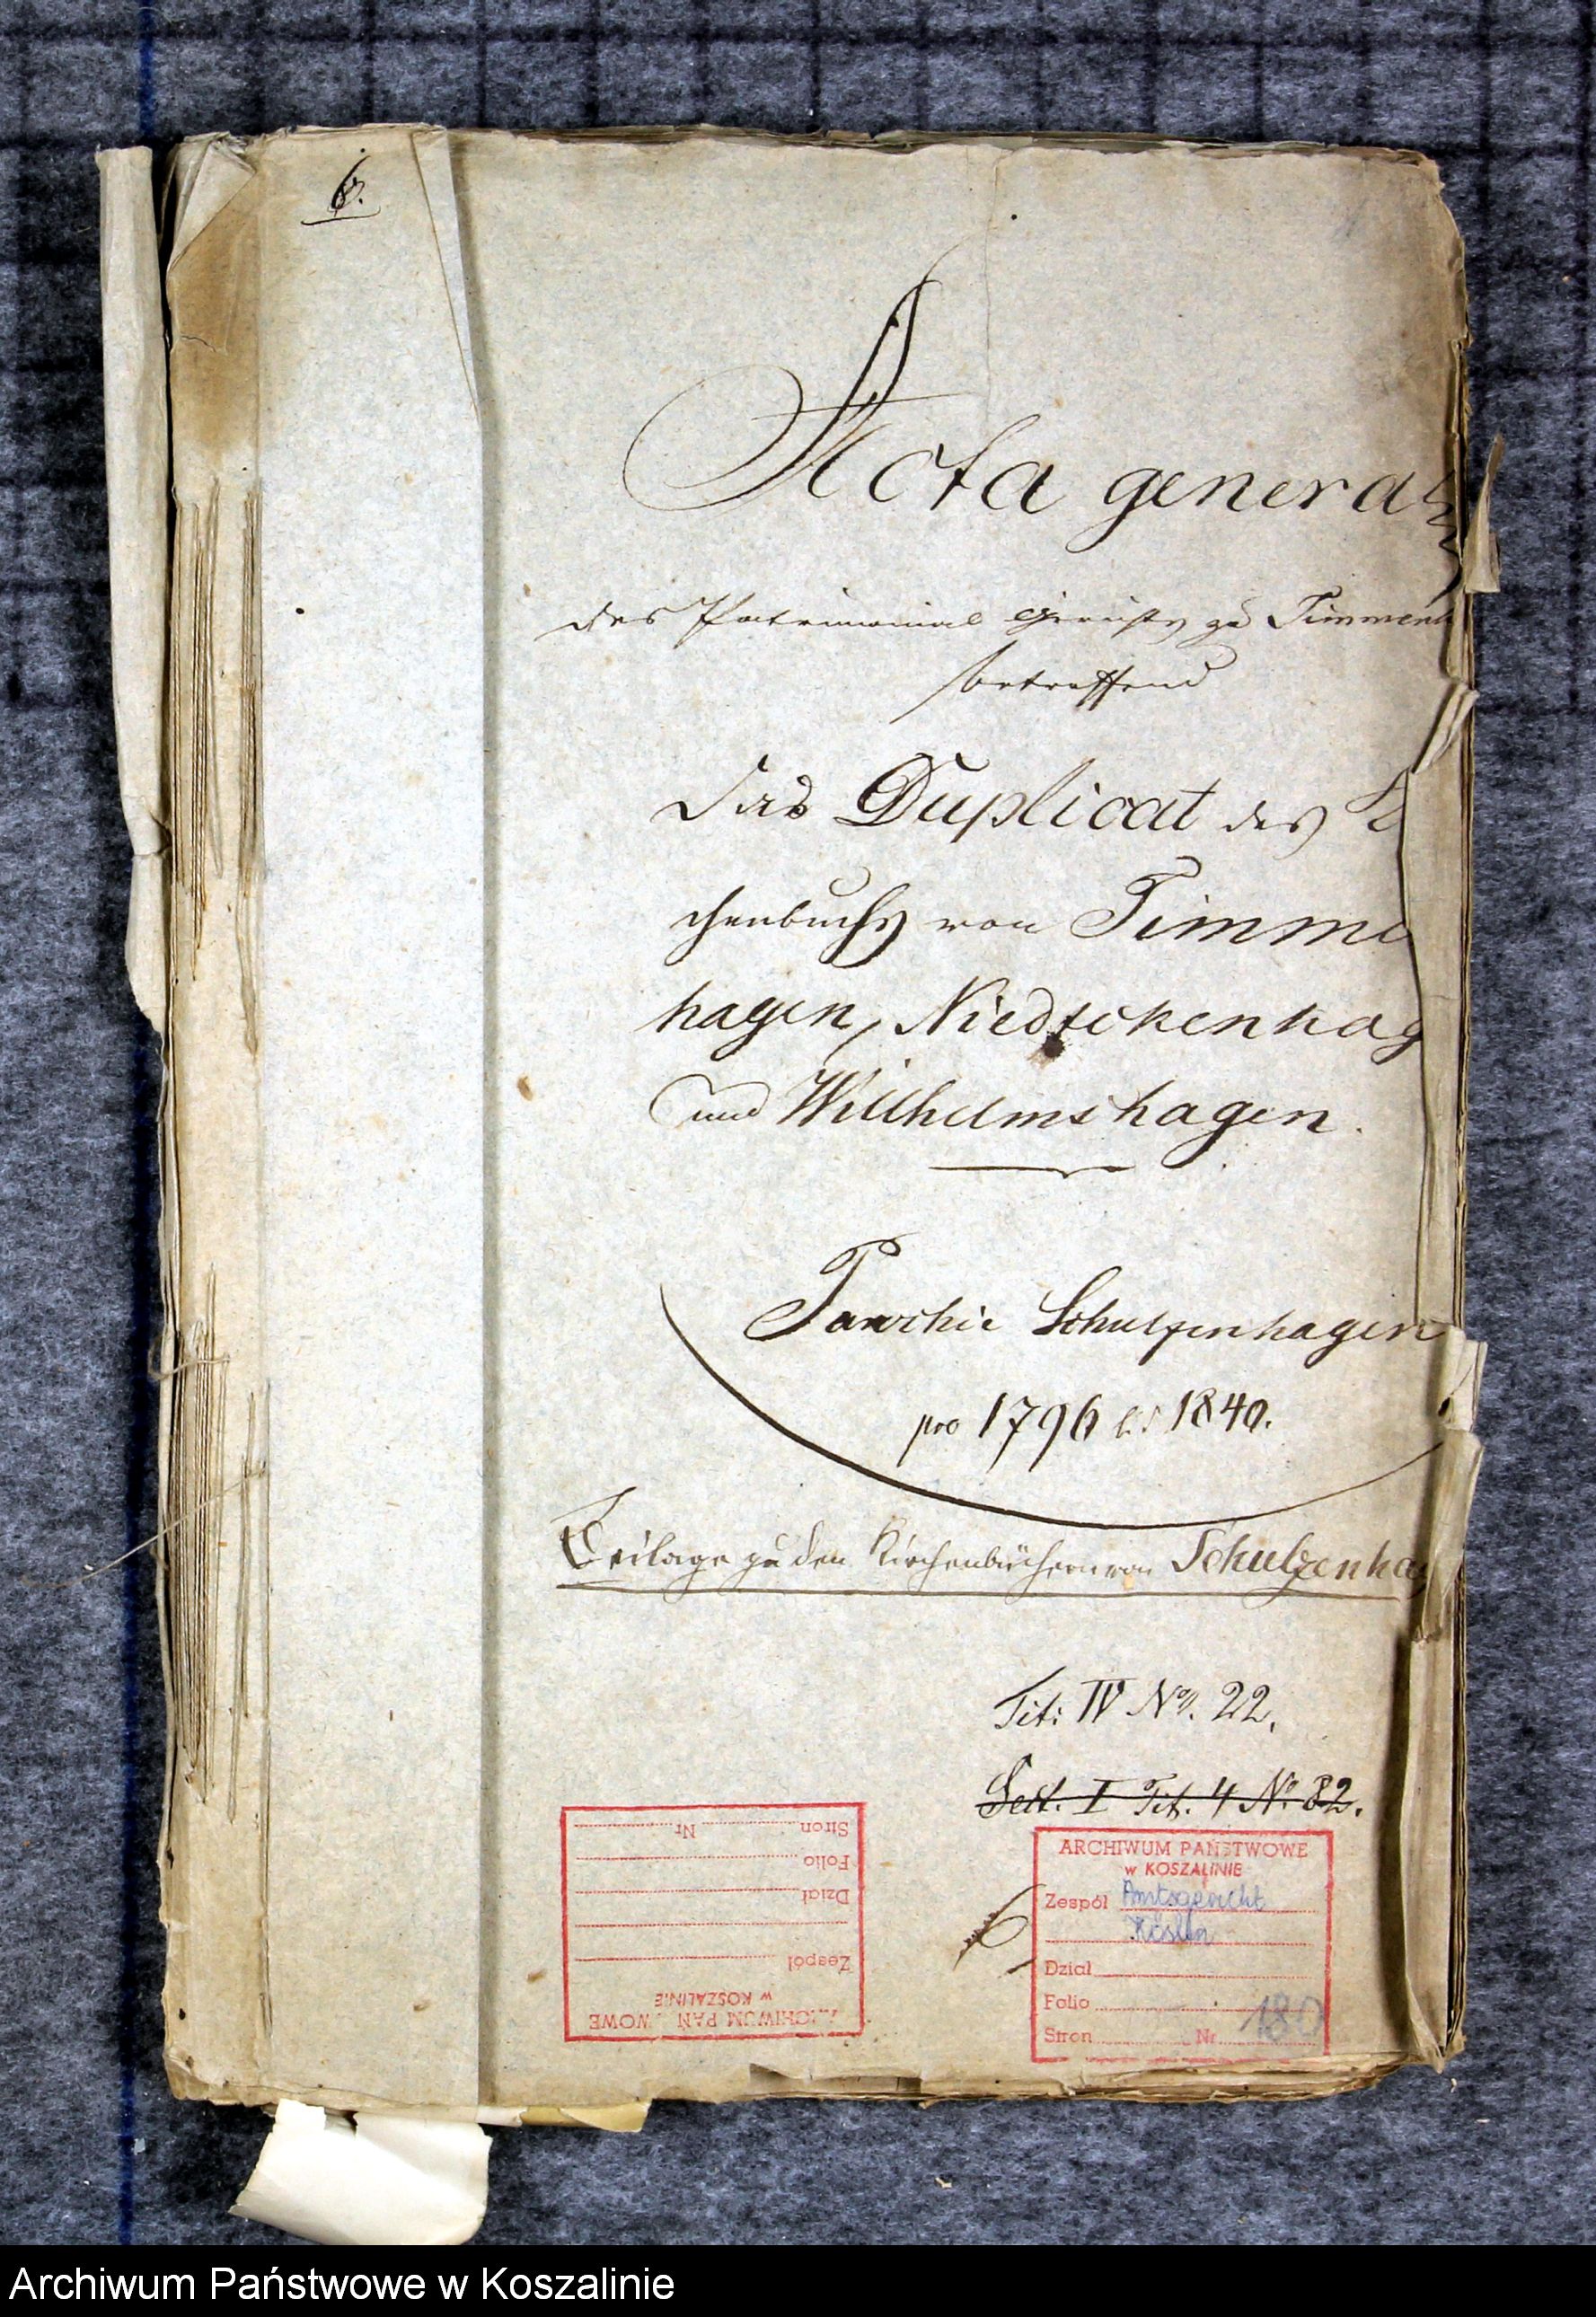 6.
Acta general
des Patrimonial Gerichts zu Timmenh
betreffend
Das Duplicat des Ki
chenbuchs von Timme
hagen, Niedtckenhag
und Willhelmshagen.
Parochie Schulzenhagen
pro 1796 bis 1840.
Beilage zu den Kirchenbüchern von Schulzenha
Tit: IV No. 22.
Sect. I Tit. 4 No. 82.
ARCHIWUM PAŃSTWOWE
w KOSZALINIE
Zespół Amtsgericht
Köslin
Dział
Folio
Stron Nr 180
ARCHIWUM PAŃSTWOWE
w KOSZALINIE
Zespół
Dział
Folio
Stron Nr
Archiwum Państwowe w Koszalinie